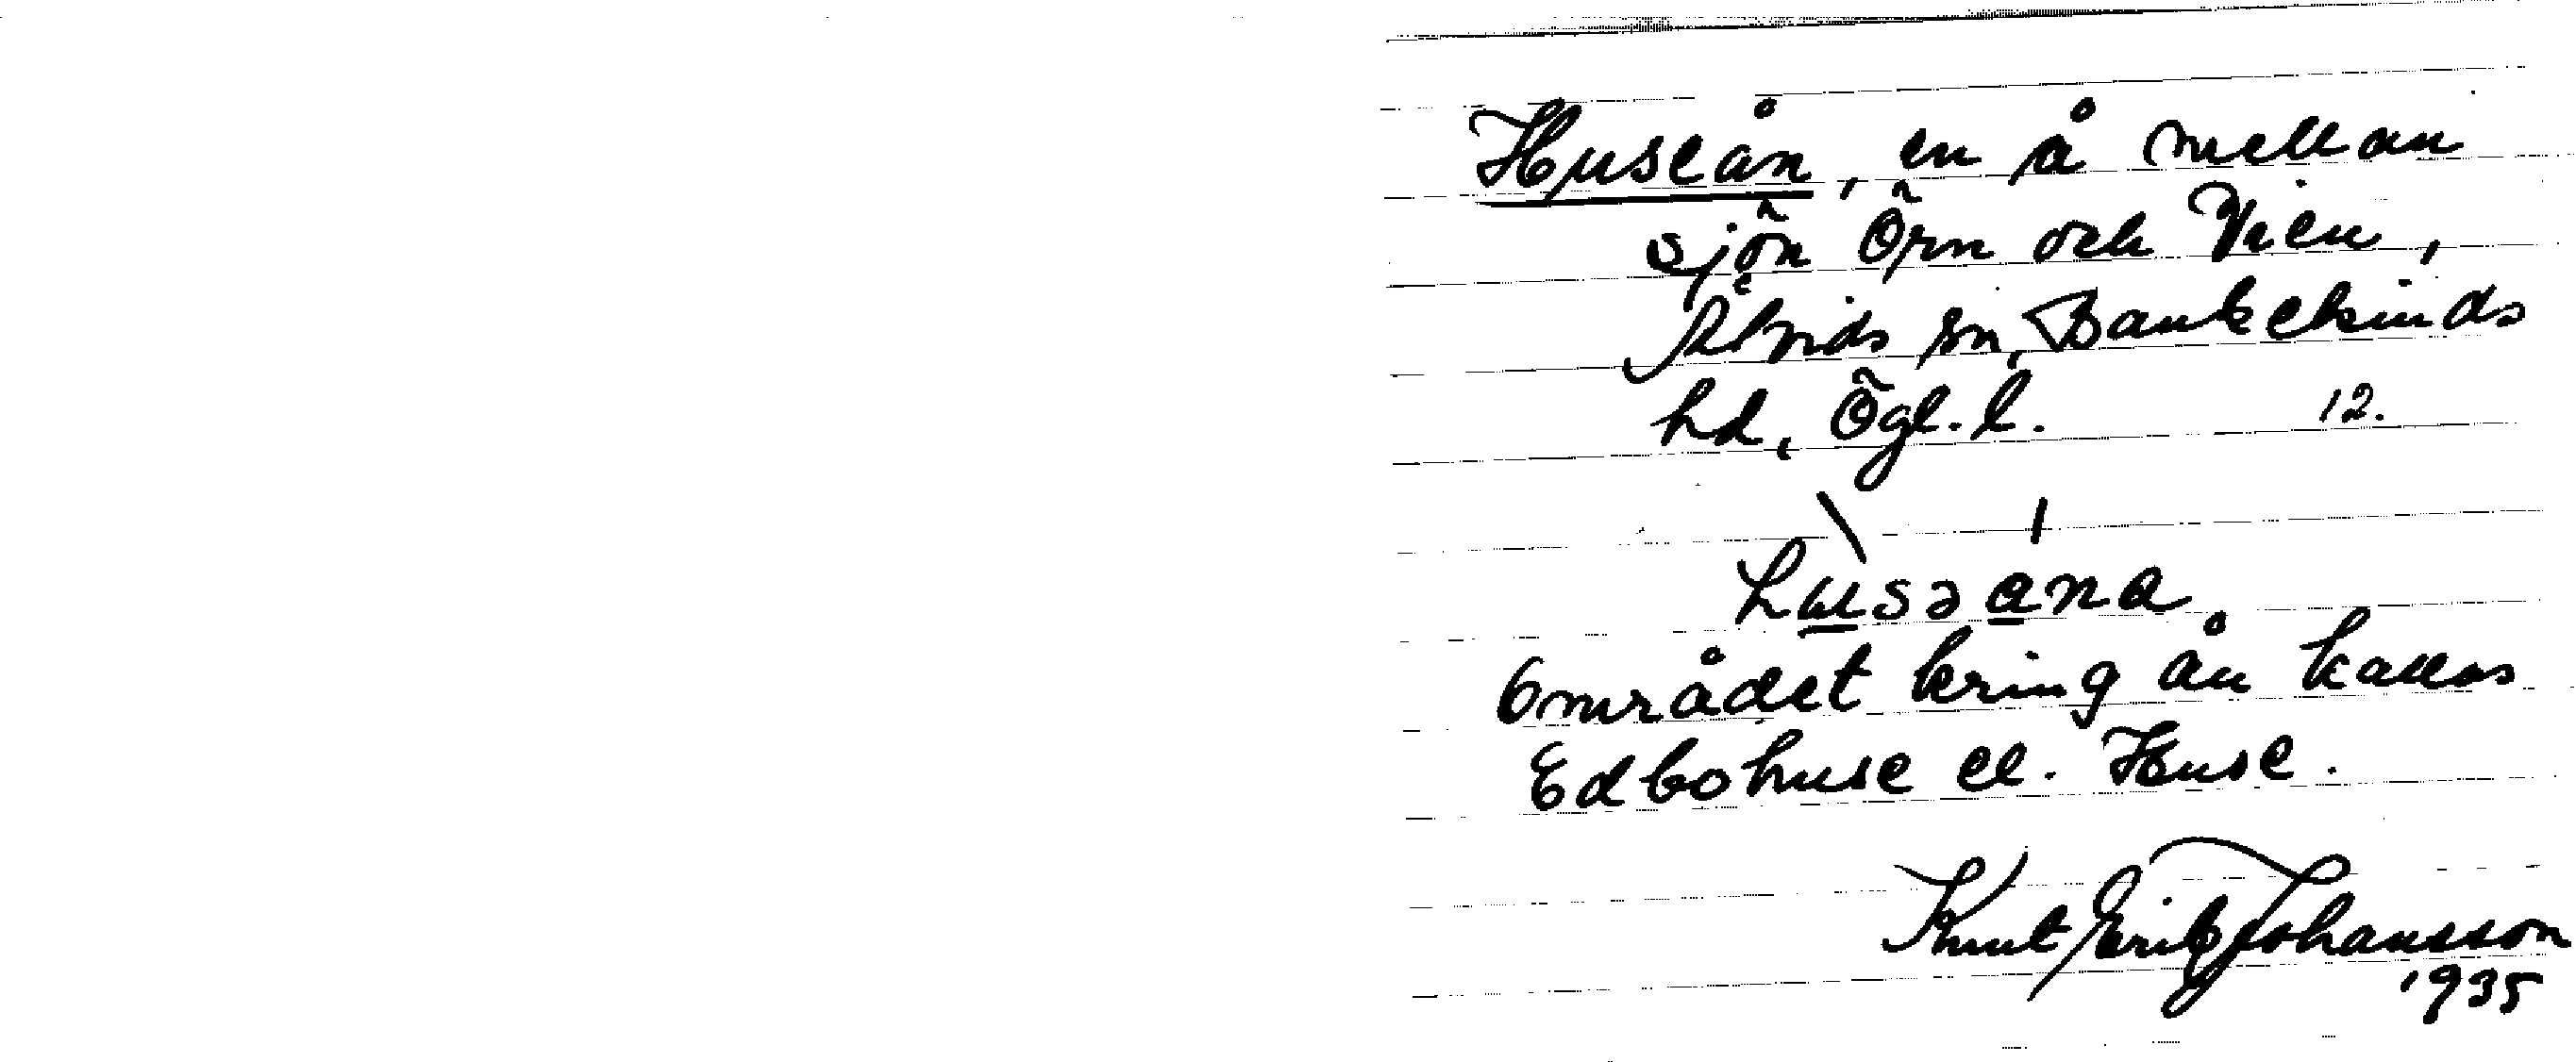 Huseån, en å mellan
sjön Örn och Vien,
Åtvids sn, Bankekinds
hd, Ögl. l. 12.
husəana
Området kring ån kallas
Edbohuse el. Huse.
Knut Erik Johansson
1935